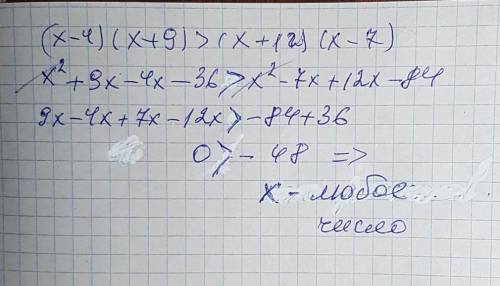 (x-4)(x+9)>(x+12)(x-7)
x²+9x-4x-36>x²-7x+12x-84
9x-4x+7x-12x>-84+36
0>-48 =>
x - любое
число